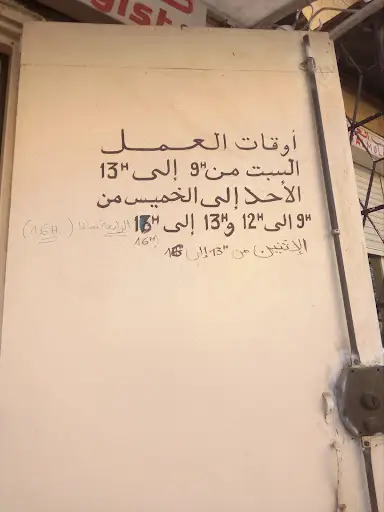 gist
أوقات العمل
السبت من 9H إلى 13H
الأحد إلى الخميس من
9H الى 12H و 13H إلى 16H الرابعة مساءا (16H)
16H
الإثنين من 13H إلى 16